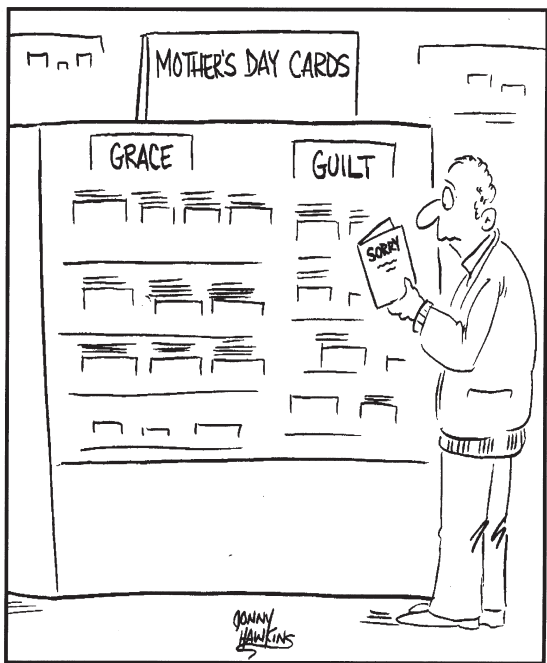 MOTHER'S DAY CARDS
GRACE
GUILT
SORRY
JONNY
HAWKINS